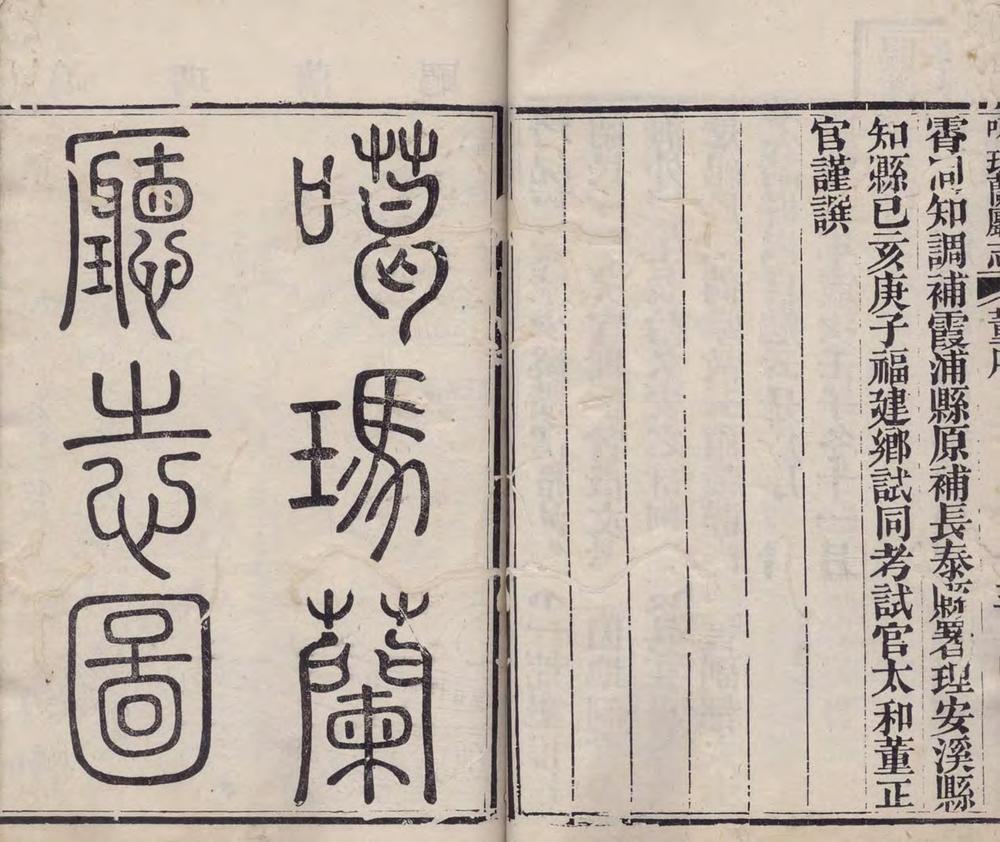 噶瑪蘭廳志 董序
霄同知調補霞浦縣原補長泰縣署理安溪縣
知縣己亥庚子福建鄉試同考試官太和董正
官謹譔
噶瑪蘭
廳志圖